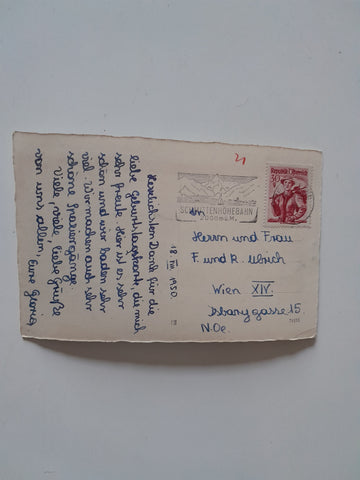 18. VII 1950.
Herzlichsten Dank für die
liebe Geburtstagskarte, die mich
sehr freute. Hier ist es sehr
schön und wir baden sehr
viel. Wir machen auch sehr
schöne Spaziergänge.
Viele, viele, liebe Grüße
von uns allen, Eure
21
SCHMITTENHÖHEBAHN
2000 m. M.
Republik Österreich
30
An
Herrn und Frau
F. und R. Ulrich
Wien XIV.
15.
N.Oe.